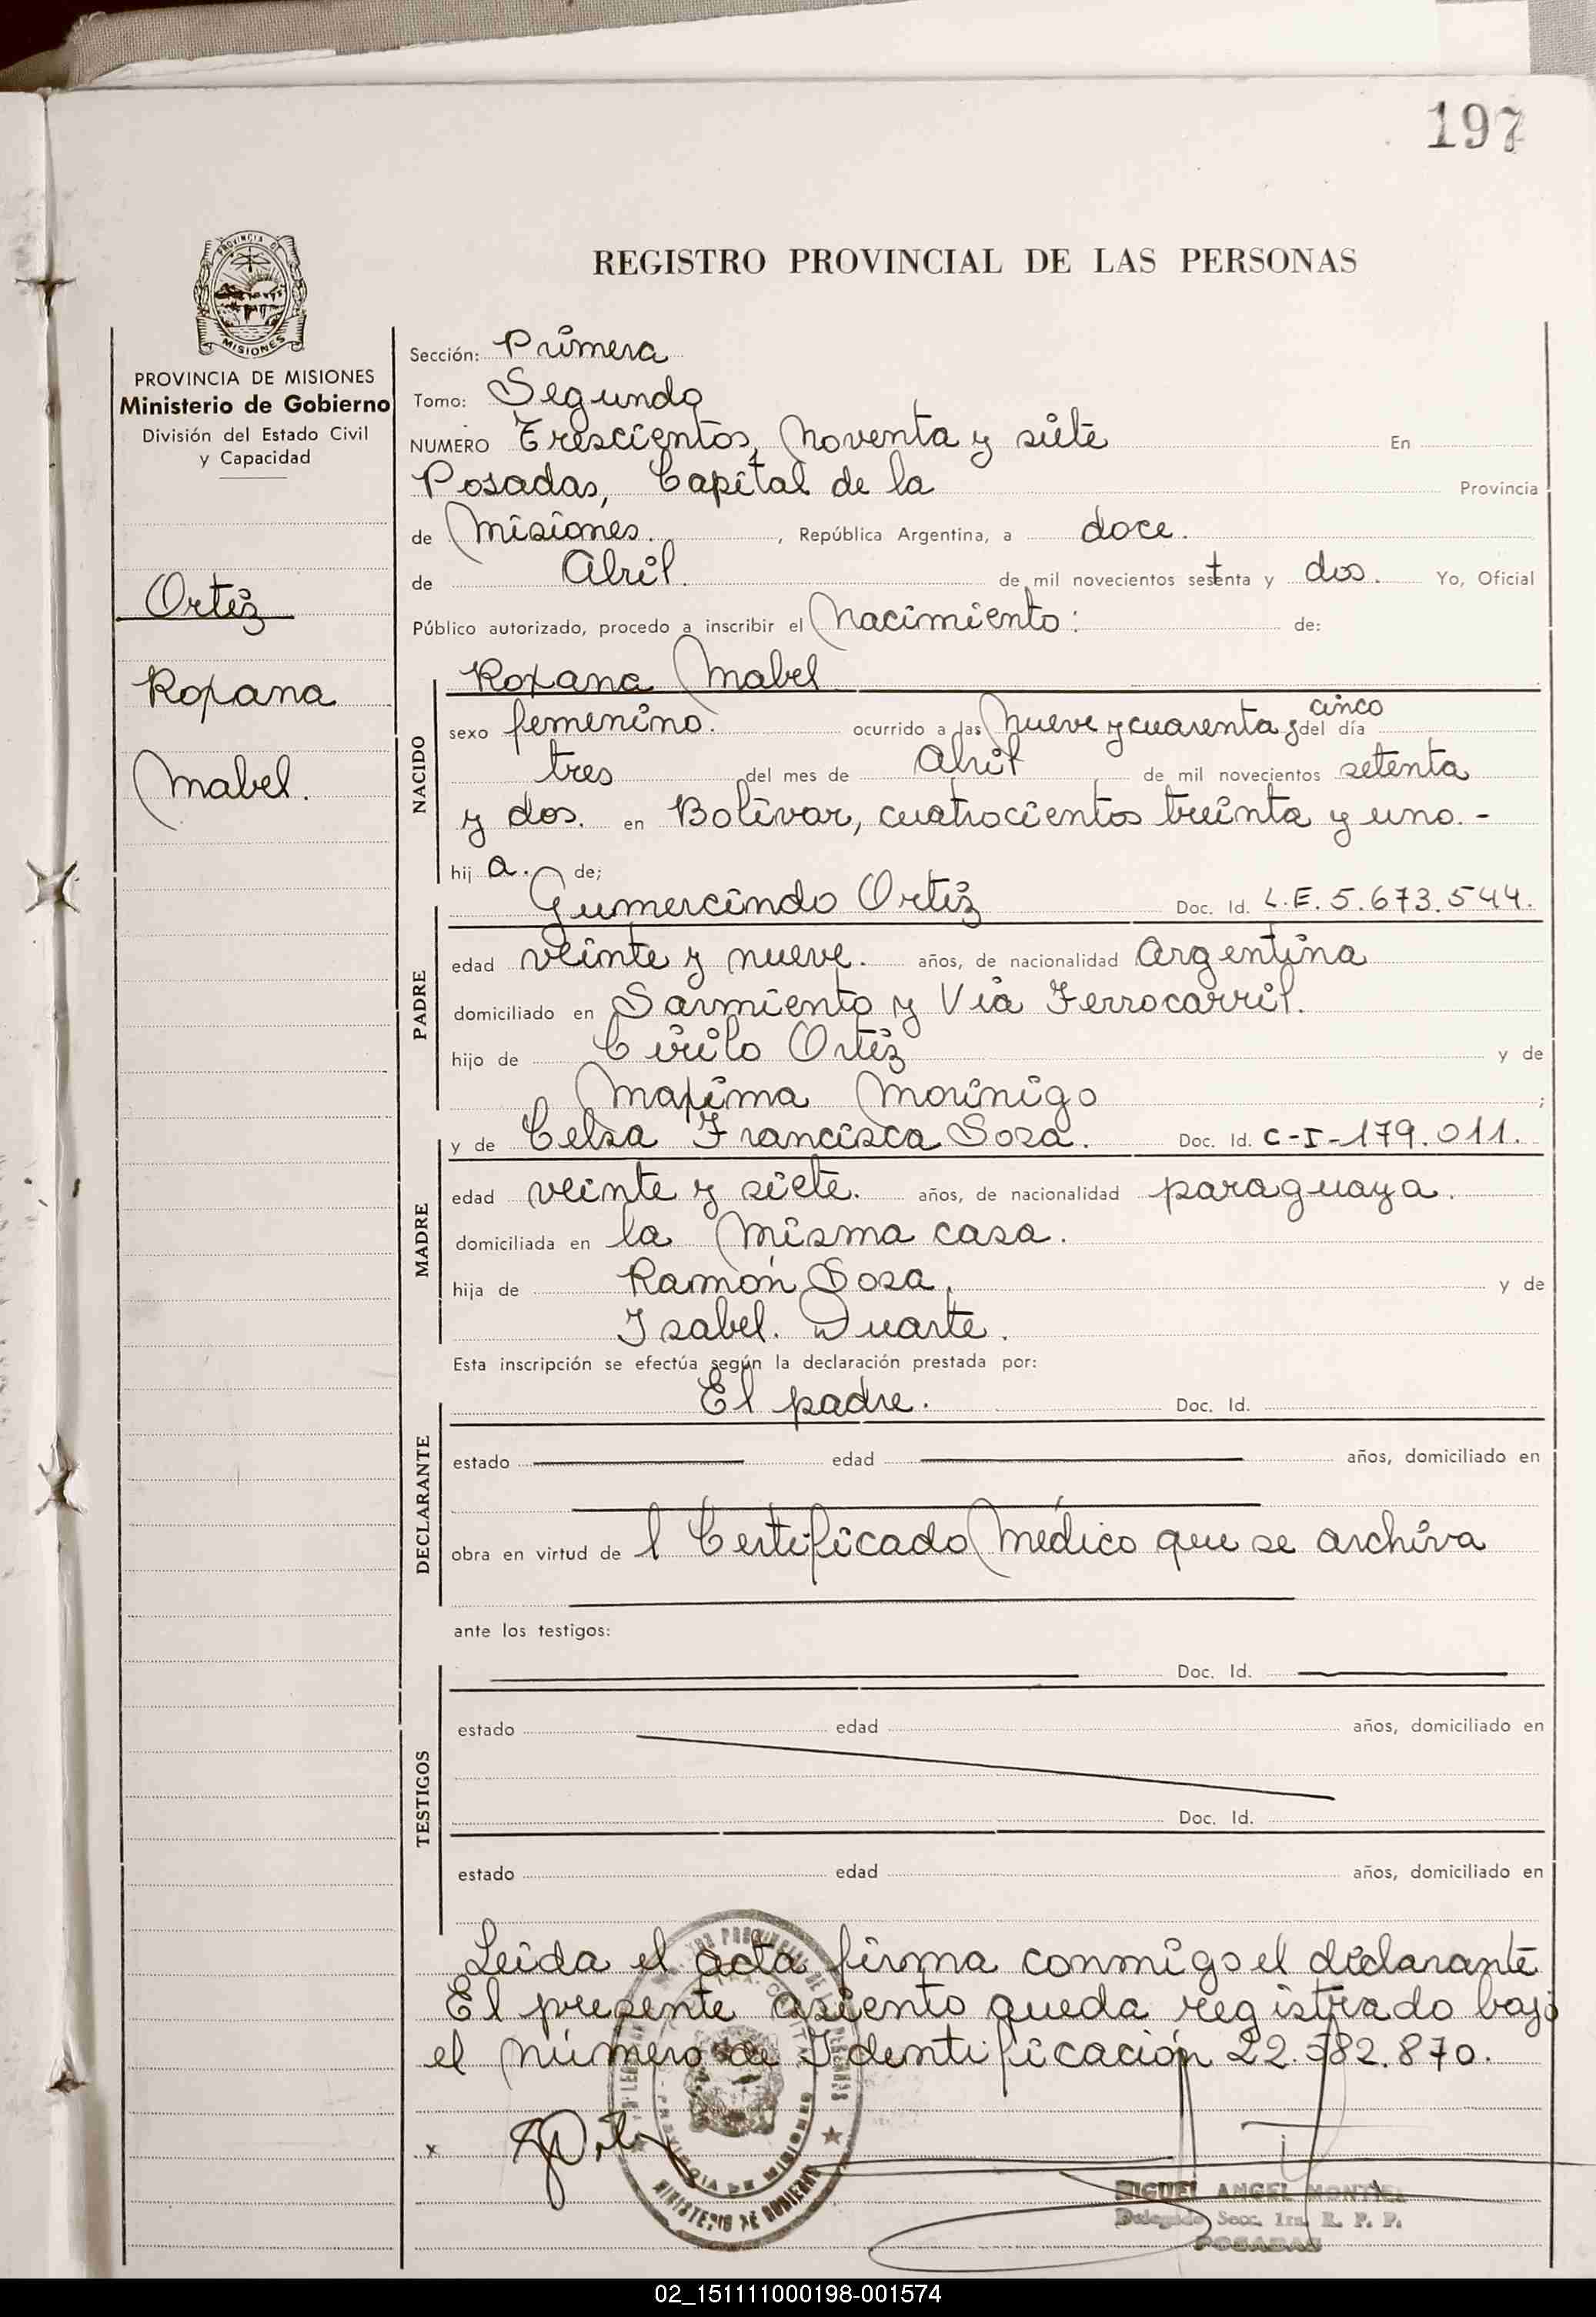 197
PROVINCIA DE
MISIONES
REGISTRO PROVINCIAL DE LAS PERSONAS
PROVINCIA DE MISIONES
Ministerio de Gobierno
División del Estado Civil
y Capacidad
Ortiz
Roxana
Mabel.
Sección: Primera
Tomo: Segundo
NUMERO Trescientos, Noventa y siete En
Posadas, Capital de la Provincia
de Misiones. , República Argentina, a doce.
de Abril. de mil novecientos setenta y dos. Yo, Oficial
Público autorizado, procedo a inscribir el Nacimiento: de:
NACIDO
Roxana Mabel
sexo femenino. ocurrido a las Nueve y cuarenta y cinco del día
tres del mes de Abril de mil novecientos setenta
y dos. en Bolívar, cuatrocientos treinta y uno.-
hij a. de;
PADRE
Gumercindo Ortiz Doc. Id. L.E. 5.673.544.
edad veinte y nueve. años, de nacionalidad Argentina
domiciliado en Sarmiento y Via Ferrocarril.
hijo de Cirilo Ortiz y de
Maxima Morinigo ;
MADRE
y de Celsa Francisca Sosa. Doc. Id. C-I-179.011.
edad veinte y siete. años, de nacionalidad paraguaya.
domiciliada en la misma casa.
hija de Ramón Sosa, y de
Isabel. Duarte.
Esta inscripción se efectúa según la declaración prestada por:
DECLARANTE
El padre. Doc. Id.
estado edad años, domiciliado en
obra en virtud de l Certificado Médico que se archiva
ante los testigos:
TESTIGOS
Doc. Id.
estado edad años, domiciliado en
Doc. Id.
estado edad años, domiciliado en
Leida el acta firma conmigo el declarante
El presente asiento queda registrado bajo
el número de Identificación 22.582.870.
x
PROVINCIA DE MISIONES
MINISTERIO DE GOBIERNO
MIGUEL ANGEL MONTIEL
Delegado Secc. 1ra. R. P. P.
POSADAS
02_151111000198-001574